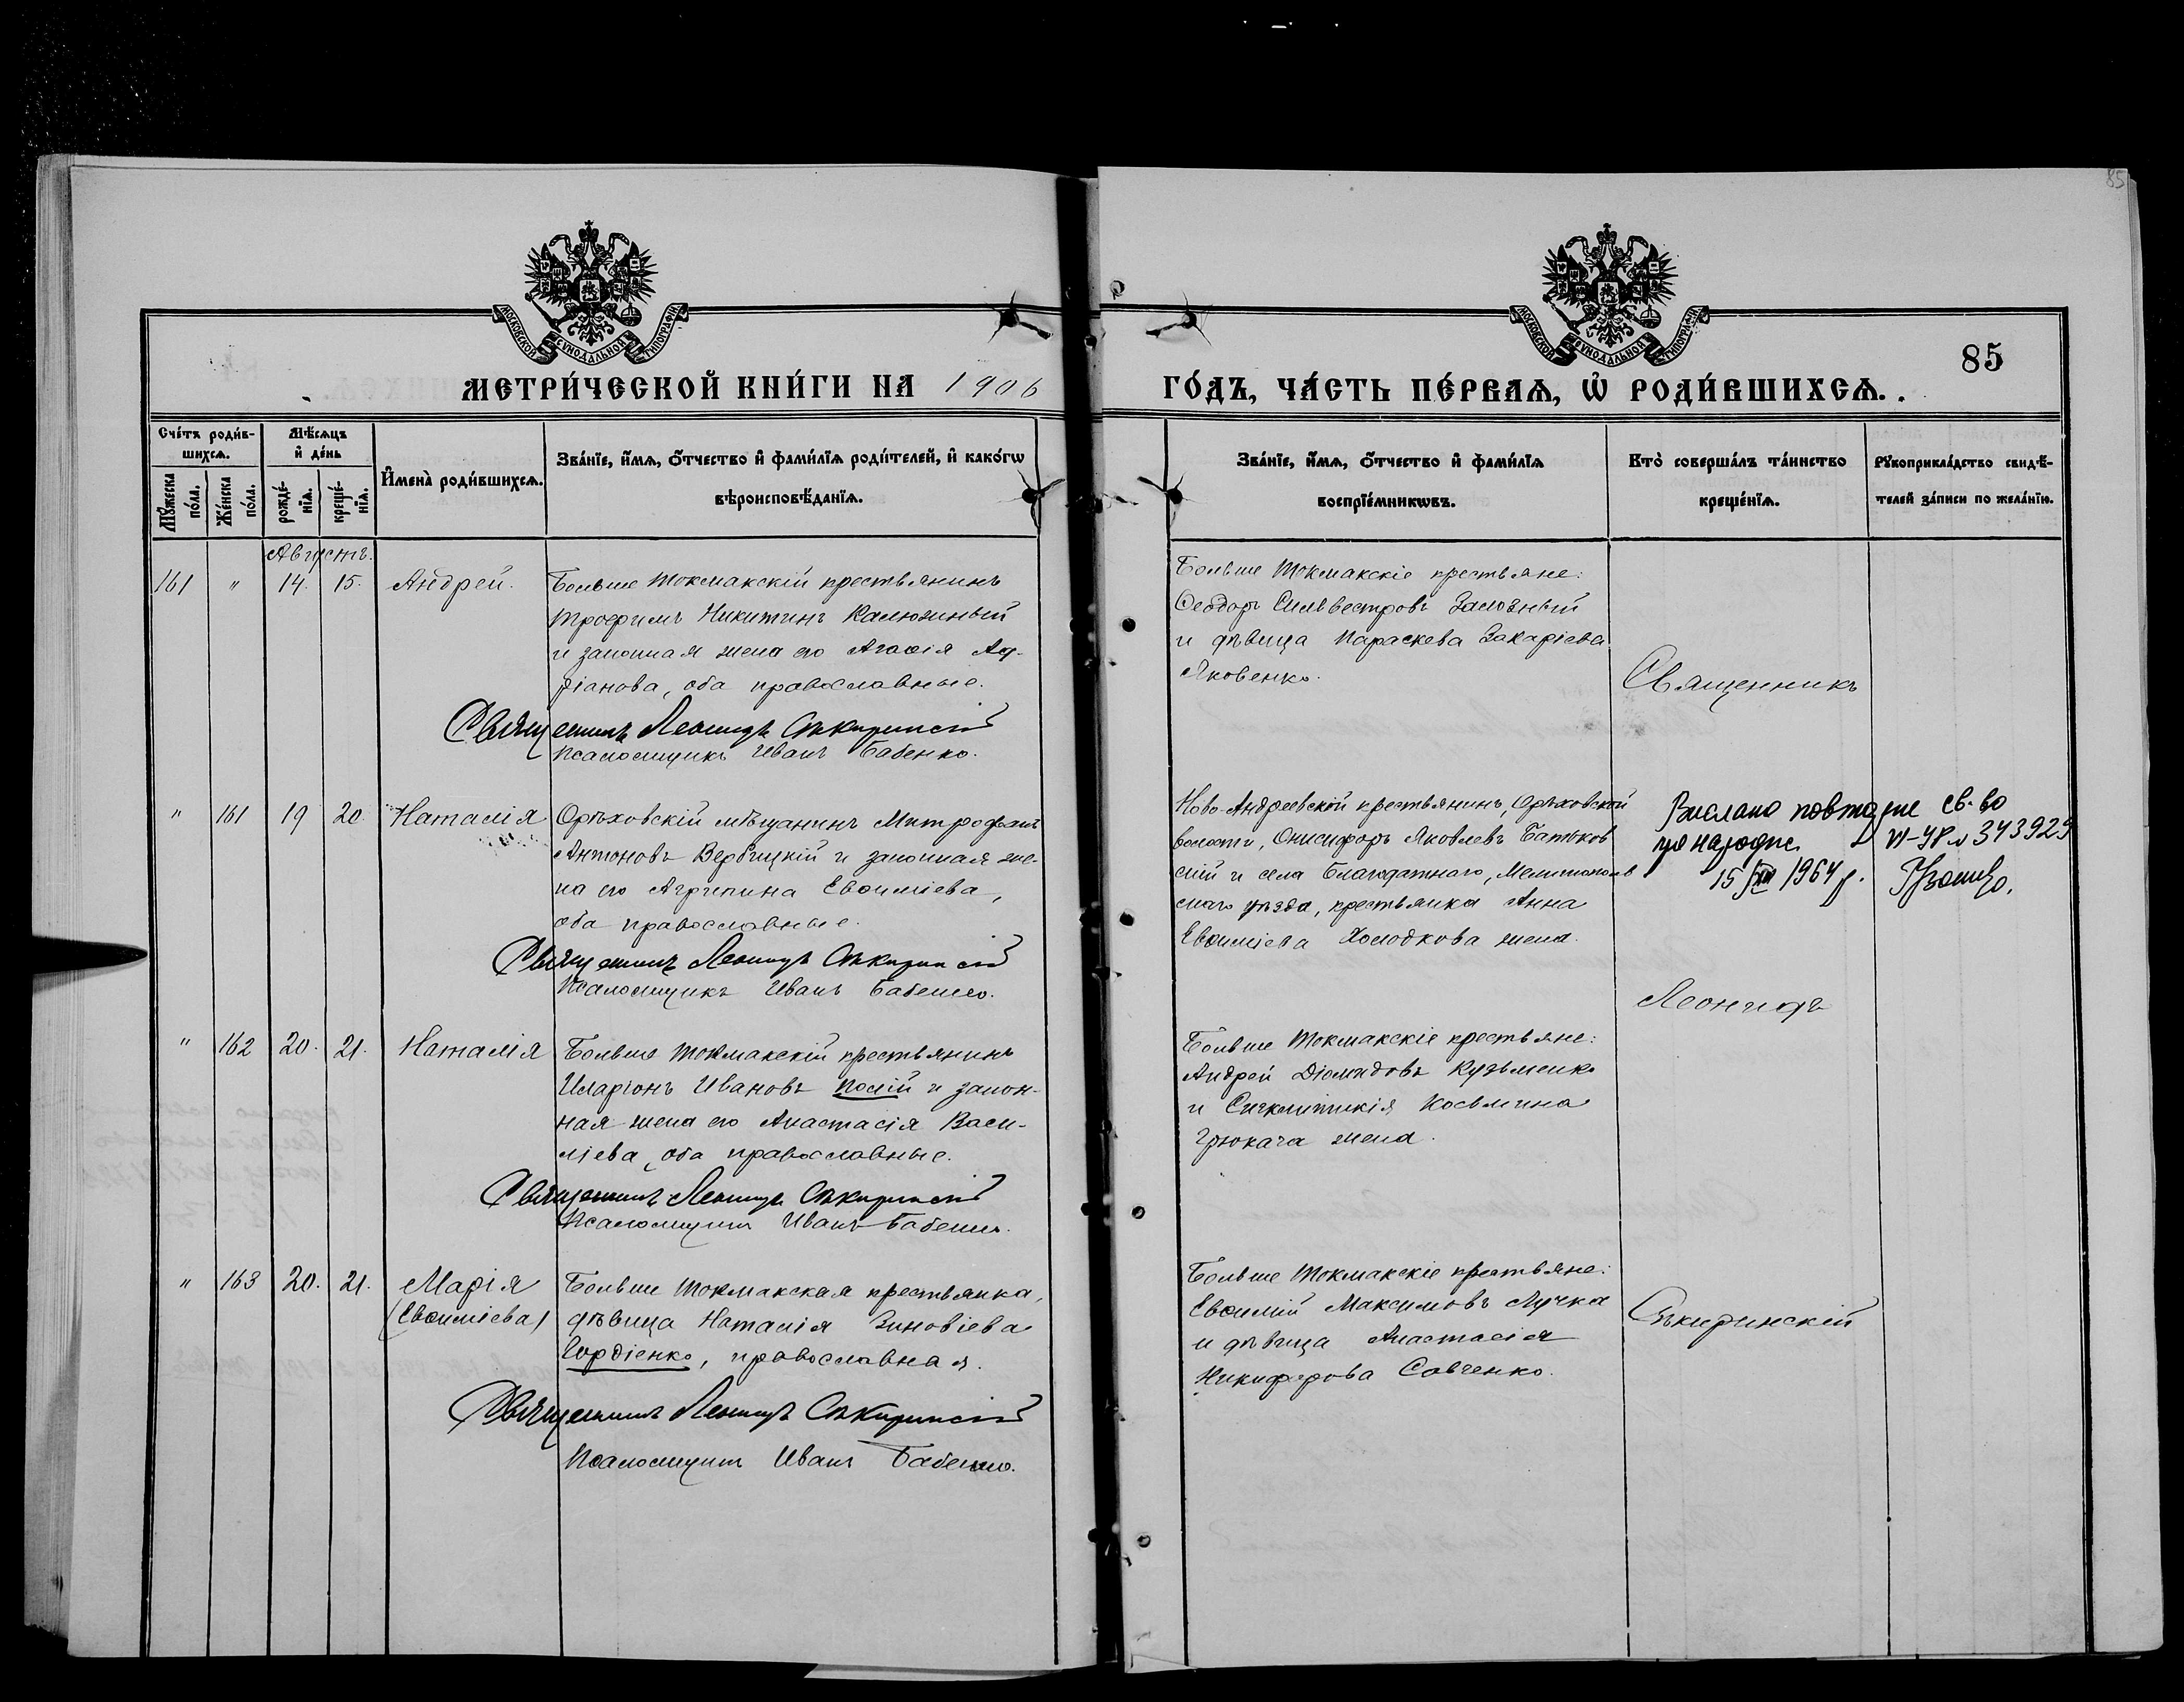 85
МОСКОВСКОЙ СѴНОДАЛЬНОЙ ТИПОГРАФІИ
МОСКОВСКОЙ СѴНОДАЛЬНОЙ ТИПОГРАФІИ
85
МЕТРИ́ЧЕСКОЙ КНИ́ГИ НА 1906 ГО́ДЪ, ЧА́СТЬ ПЕ́РВАѦ, Ѡ҆ РОДИ́ВШИХСѦ.
Сче́тъ роди́в-
шихсѧ.
Мꙋ́жеска по́ла.
Же́нска по́ла.
Мѣ́сѧцъ
и҆ де́нь
рожде́-
нїѧ.
креще́-
нїѧ.
И҆мена̀ роди́вшихсѧ.
Зва́нїе, и҆́мѧ, ѻ҆́тчество и҆ фами́лїѧ роди́телей, и҆ како́гѡ
вѣроисповѣ́данїѧ.
Зва́нїе, и҆́мѧ, ѻ҆́тчество и҆ фами́лїѧ
воспрїе́мникѡвъ.
Кто̀ соверша́лъ та́инство
креще́нїѧ.
Рꙋкоприкла́дство свидѣ́-
телей за́писи по жела́нїю.
Августъ.
161 " 14. 15. Андрей.
Больше Токмакскій крестьянинъ
Трофимъ Никитинъ Калюжный
и законная жена его Агаѳія Ад-
ріанова, оба православные.
Священникъ Леонидъ Сѣкиринскій
Псаломщикъ Иванъ Бабенко.
Больше Токмакскіе крестьяне:
Ѳеодоръ Сильвестровъ Заложный
и дѣвица Параскева Захаріева
Яковенко.
Священникъ
" 161 19 20. Наталія
Орѣховскій мѣщанинъ Митрофанъ
Антоновъ Вербицкій и законная же-
на его Агрипина Евѳиміева,
оба православные.
Священникъ Леонидъ Сѣкиринскій
Псаломщикъ Иванъ Бабенко.
Ново-Андреевской крестьянинъ, Орѣховской
волости, Онисифоръ Яковлевъ Батьков
скій и села Благодатнаго, Мелитополь
скаго уѣзда, крестьянка Анна
Евѳиміева Холодкова жена.
Вислано повторне св-во
про народж. VI-УР № 343929
15/III 1964 р.
Леонидъ
" 162 20. 21. Наталія
Больше Токмакскій крестьянинъ
Иларіонъ Ивановъ Полій и закон-
ная жена его Анастасія Васи-
ліева, оба православные.
Священникъ Леонидъ Сѣкиринскій
Псаломщикъ Иванъ Бабенко.
Больше Токмакскіе крестьяне:
Андрей Діомидовъ Кузьменко
и Синклитикія Косьмина
Грюкача жена.
" 163 20. 21. Марія
(Евѳиміева)
Больше Токмакская крестьянка,
дѣвица Наталія Зиновіева
Гордіенко, православная.
Священникъ Леонидъ Сѣкиринскій
Псаломщикъ Иванъ Бабенко.
Больше Токмакскіе крестьяне:
Евѳимій Максимовъ Лучка
и дѣвица Анастасія
Никифорова Савченко.
Сѣкиринскій